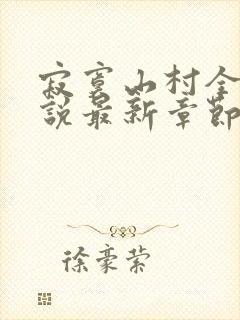 寂寞山村全
說最新章節
徐豪縈